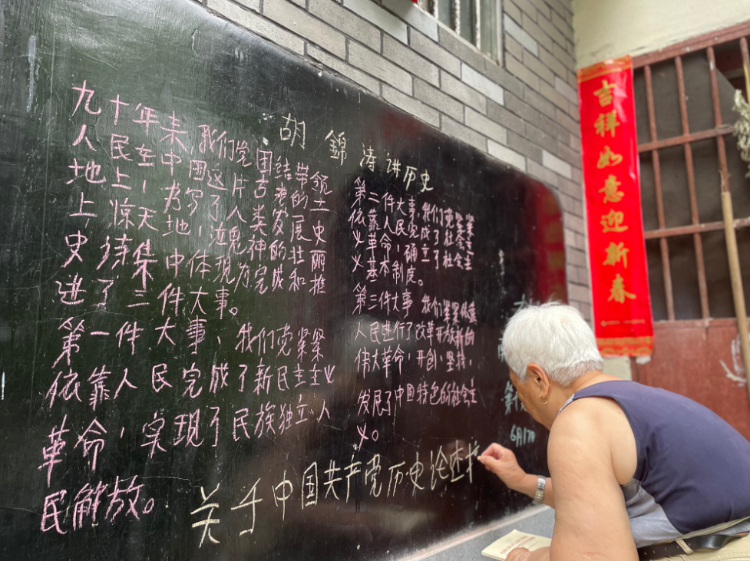 胡錦涛讲历史
九十年来,我们党团结带领
人民在中国这片古老的土
地上,书写了人类发展史
上惊天地,泣鬼神的壮丽
史诗集中体现为完成和推
进了三件大事。
第一件大事,我们党紧紧
依靠人民完成了新民主主义
革命,实现了民族独立,人
民解放。
第二件大事,我们党紧紧
依靠人民,完成了社会主
义革命,确立了社会主
义基本制度。
第三件大事 我们党紧紧依靠
人民进行了改革开放新的
伟大革命,开创,坚持,
发展了中国特色的社会主
义。
关于中国共产党历史论述摘
吉祥如意迎新春